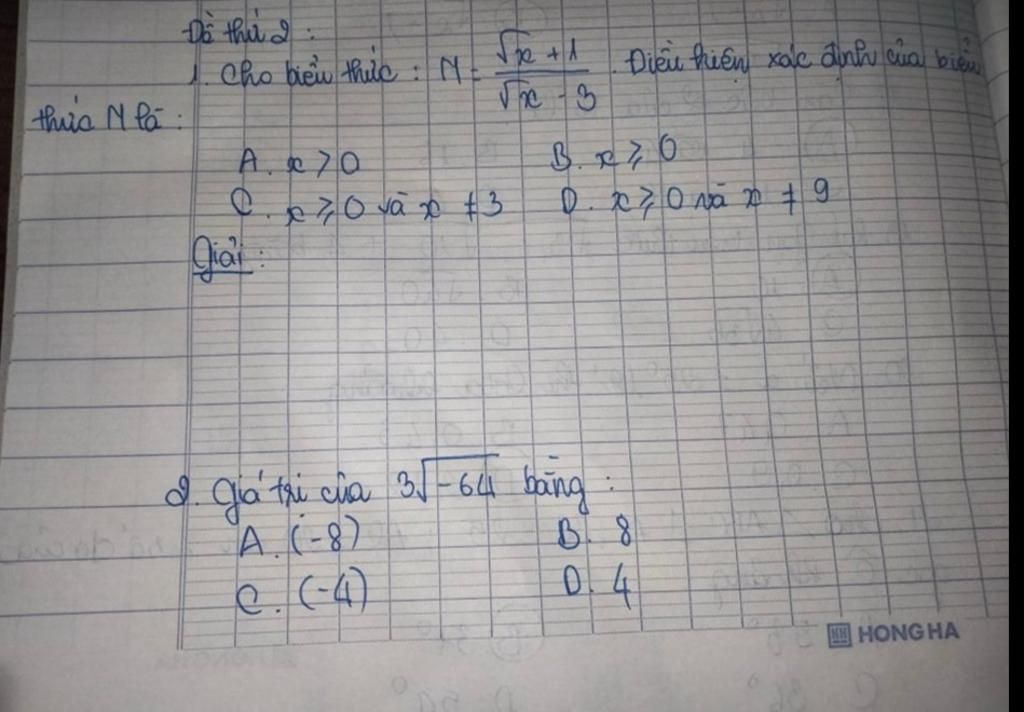 Đề thứ 2 :
1. Cho biểu thức : M = \frac{\sqrt{x} + 1}{\sqrt{x} - 3} . Điều kiện xác định của biểu
thức M là :
A. x > 0 B. x ⩾ 0
C. x ⩾ 0 và x ≠ 3 D. x ⩾ 0 và x ≠ 9
Giải :
2. Giá trị của 3√-64 bằng :
A. (-8) B. 8
C. (-4) D. 4
HH HONG HA